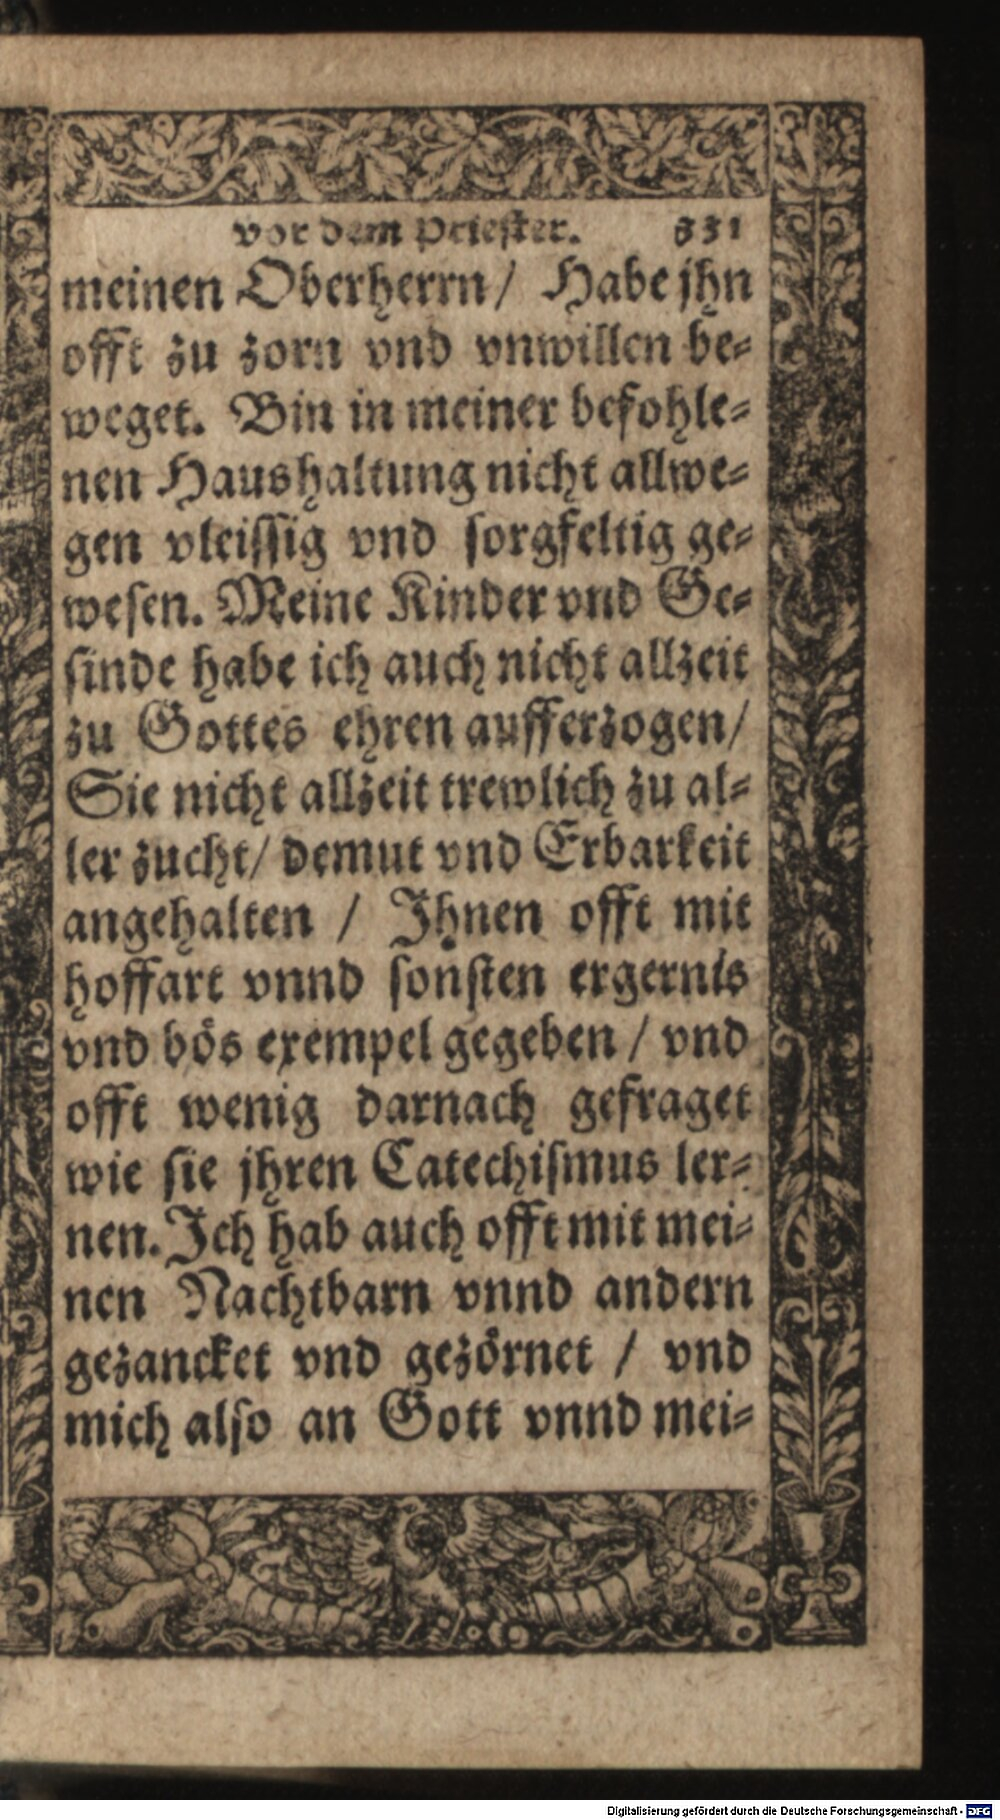 vor dem Priester. 331
meinen Oberherrn / Habe jhn
offt zu zorn vnd vnwillen be⸗
weget. Bin in meiner befohle⸗
nen Haushaltung nicht allwe⸗
gen vleissig vnd sorgfeltig ge⸗
wesen. Meine Kinder vnd Ge⸗
sinde habe ich auch nicht allzeit
zu Gottes ehren aufferzogen /
Sie nicht allzeit trewlich zu al⸗
ler zucht / demut vnd Erbarkeit
angehalten / Jhnen offt mit
hoffart vnnd sonsten ergernis
vnd bös exempel gegeben / vnd
offt wenig darnach gefraget
wie sie jhren Catechismus ler⸗
nen. Jch hab auch offt mit mei⸗
nen Nachtbarn vnnd andern
gezancket vnd gezörnet / vnd
mich also an Gott vnnd mei⸗
Digitalisierung gefördert durch die Deutsche Forschungsgemeinschaft - DFG